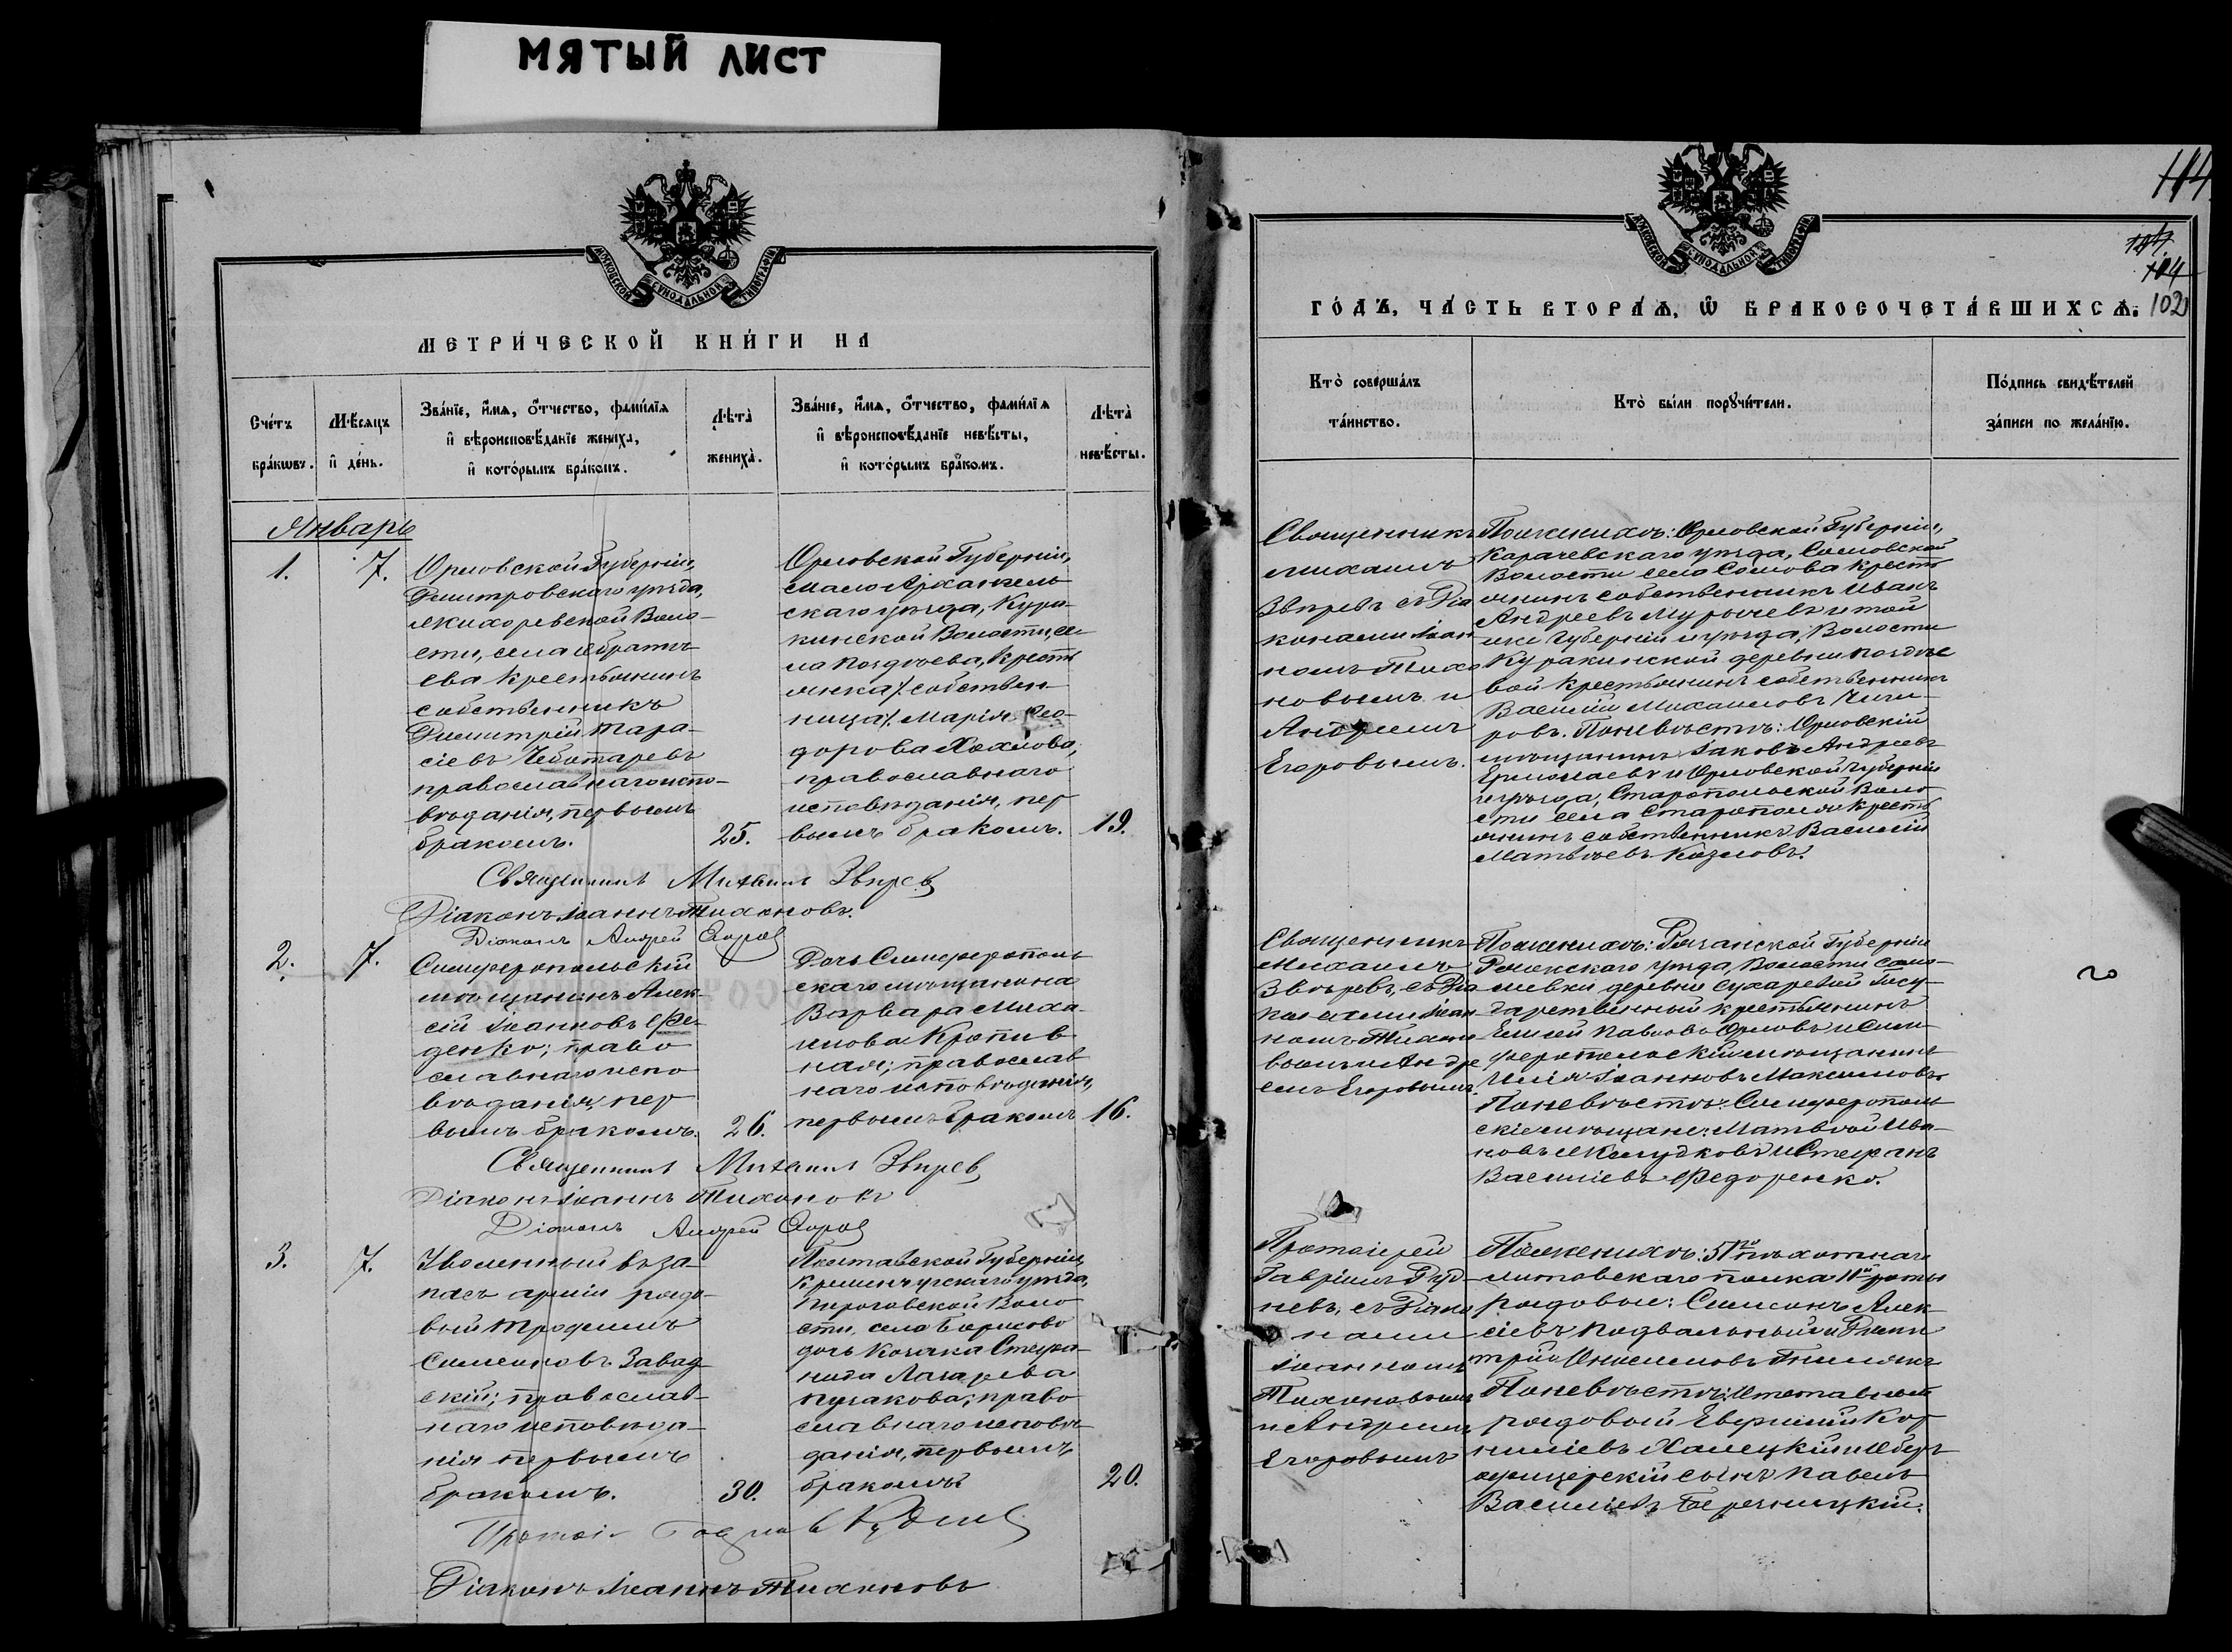 МЯТЫЙ ЛИСТ
МОСКОВСКОЙ СѴНОДАЛЬНОЙ ТИПОГРАФІИ
МЕТРИ́ЧЕСКОЙ КНИ́ГИ НА
Сче́тъ бра́кωвъ.
Мѣ́сяцъ и҆ де́нь.
Зва́нїе, и҆́мѧ, ѻ҆́тчество, фами́лїѧ
и҆ вѣроисповѣ́данїе жениха̀,
и҆ кото́рымъ бра́комъ.
Лѣ́та жениха̀.
Зва́нїе, и҆́мѧ, ѻ҆́тчество, фами́лїѧ
и҆ вѣроисповѣ́данїе невѣ́сты,
и҆ кото́рымъ бра́комъ.
Лѣ́та невѣ́сты.
Январь
1.
7.
Орловской Губерніи,
Дмитровскаго уѣзда,
лихоревской Воло-
сти, села
ева крестьянинъ
собственникъ
Димитрій Тара-
сіевъ Чеботаревъ
православнаго испо-
вѣданія, первымъ
бракомъ.
25.
Орловской Губерніи,
Мало Архангель
скаго уѣзда, Кура-
кинской Волости, се
ла Поздѣева, кресть
янка /. собствен-
ница /. Марія Фео-
дорова Хохлова,
православнаго
исповѣданія, пер
вымъ бракомъ.
19.
Священникъ Михаилъ Звѣрев
Діаконъ Іоаннъ Тихоновъ.
Діаконъ Андрей
2.
7.
Симферопольскій
мѣщанинъ Алек-
сій Іоанновъ Фе-
денко; право
славнаго испо
вѣданія, пер
вымъ бракомъ.
26.
Дочь Симферополь
скаго мѣщанина
Варвара Миха-
илова Кропив-
ная; православ
наго исповѣданія,
первымъ бракомъ
16.
Священникъ Михаилъ Звѣрев
Діаконъ Іоаннъ Тихоновъ
Діаконъ Андрей
3.
7.
Уволенный въ за-
пасъ арміи рядо-
вый Трофимъ
Симеоновъ Завад-
скій; православ-
наго исповѣда-
нія первымъ
бракомъ.
30.
Полтавской Губерніи,
Кременчугскаго уѣзда,
Пироговской Воло
сти, села Борисово
дочь Козака Стефа-
нида Лазарева
Пугакова; право
славнаго исповѣ
данія, первымъ
бракомъ.
20.
Діаконъ Іоаннъ Тихоновъ
114
104
102
МОСКОВСКОЙ СѴНОДАЛЬНОЙ ТИПОГРАФІИ
ГО́ДЪ, ЧА́СТЬ ВТОРА́Ѧ, Ѽ БРАКОСОЧЕТА́ВШИХСѦ.
Кто̀ соверша́лъ
та́инство.
Кто̀ бы́ли порꙋчи́тели.
По́дпись свидѣ́телей
за́писи по жела́нїю.
Священникъ
Михаилъ
Звѣревъ съ Діа
конами Іоан
номъ Тихо
новымъ и
Андреемъ
Егоровымъ.
По женихѣ: Орловской Губерніи,
Карачевскаго уѣзда, Сомовской
Волости села Сомова кресть
янинъ собственникъ Иванъ
Андреевъ Мурычевъ и той
же Губерніи и уѣзда, Волости
Куракинской деревни Поздѣе
вой крестьянинъ собственникъ
Василій Михаиловъ Чиги-
ровъ. По невѣстѣ: Орловскій
мѣщанинъ Іаковъ Андреевъ
Ермолаевъ и Орловской Губерніи
и уѣзда, Старопольской Воло
сти села Старополя кресть
янинъ собственникъ Василій
Матвѣевъ Козловъ.
Священникъ
Михаилъ
Звѣревъ, съ Діа
конами Іоан
номъ Тихоно
вымъ и Андре
емъ Егоровымъ.
По женихѣ: Рязанской Губерніи
Ряжскаго уѣзда, Волости
деревни Сухаревой Госу-
дарственный крестьянинъ
Елисей Павловъ Орловъ и Сим-
феропольскій мѣщанинъ
Илія Іоанновъ Максимовъ.
По невѣстѣ: Симферополь
скіе мѣщане: Матвѣй Ива-
новъ и Стефанъ
Василіевъ Федоренко.
Протоіерей
Гавріилъ Руд-
невъ, съ Діако
нами
Іоанномъ
Тихоновымъ
и Андреемъ
Егоровымъ
По женихѣ: 51го пѣхотнаго
Литовскаго полка 11й роты
рядовые: Симеонъ Алек-
сіевъ Подвальный и Дими
трій Онисимовъ
По невѣстѣ: отставной
рядовый Евфимій Кор
ниліевъ Халецкій и Обер
офицерскій сынъ Павелъ
Василіевъ Березницкій.